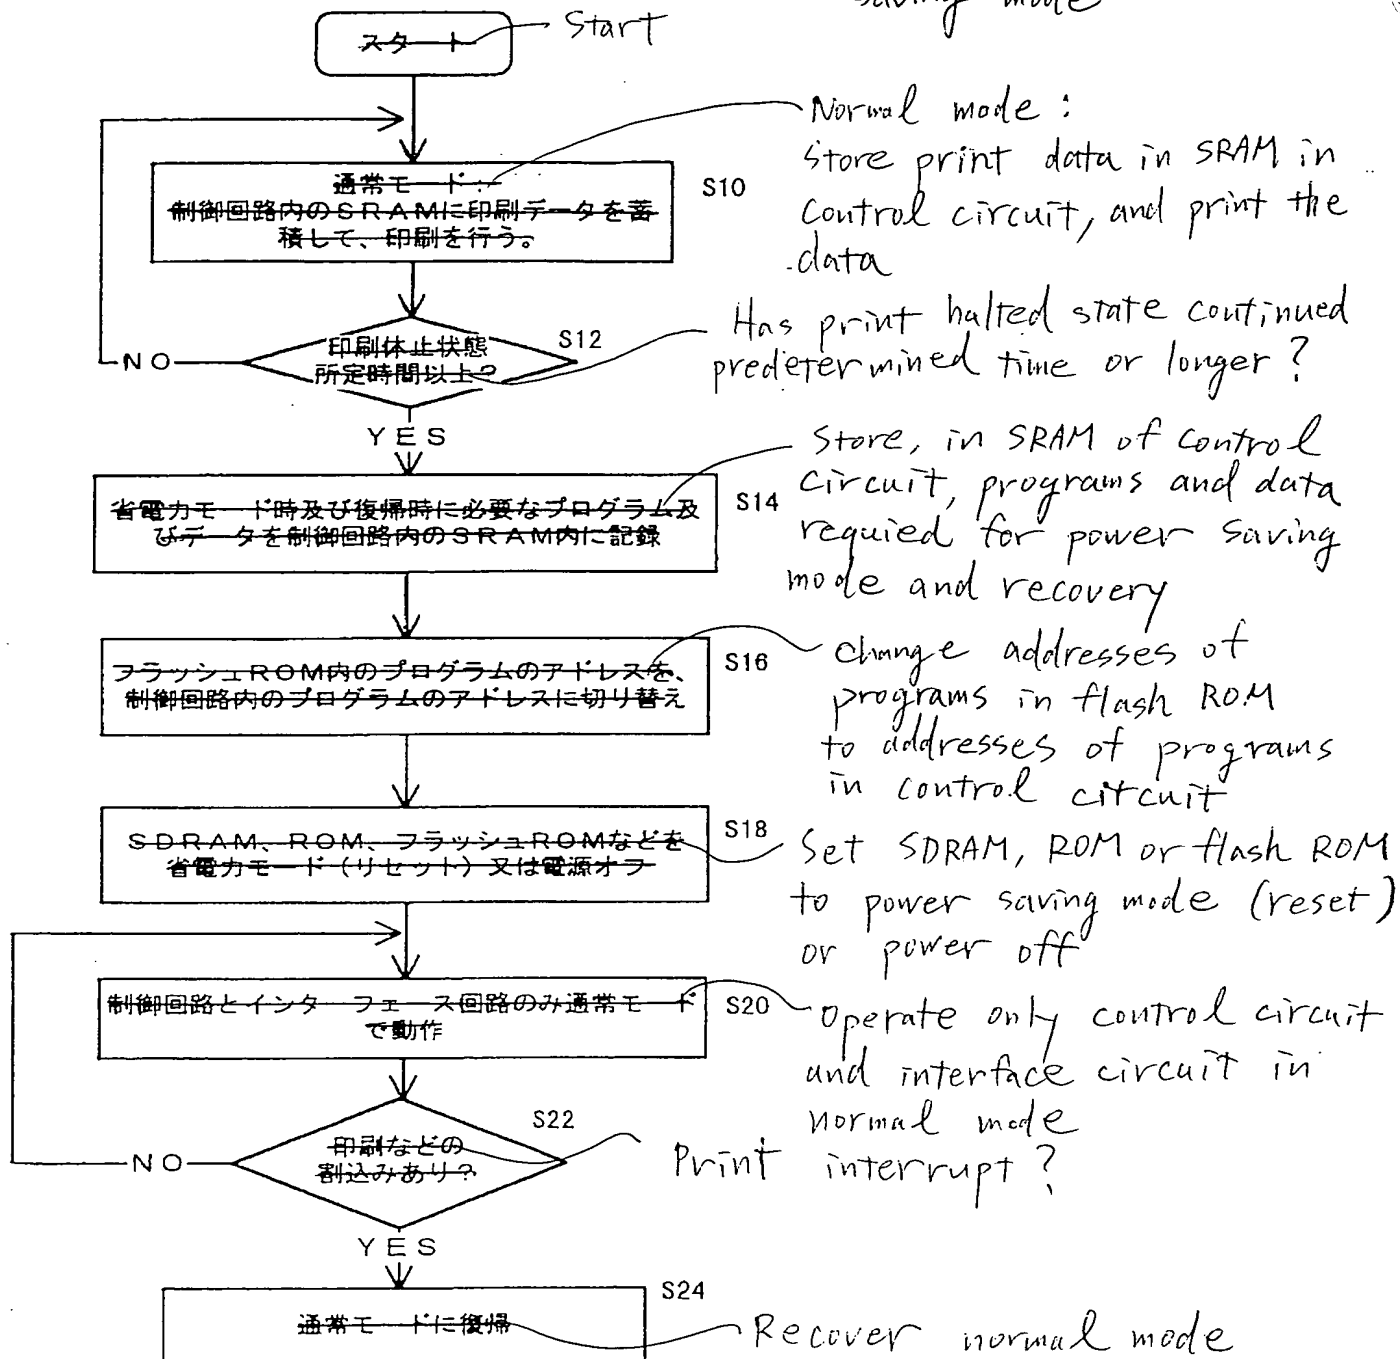 saving mode
スタート
Start
Normal mode :
Store print data in SRAM in
control circuit, and print the
data
通常モード：
制御回路内のSRAMに印刷データを蓄
積して、印刷を行う。
S10
印刷休止状態
所定時間以上？
S12
NO
YES
Has print halted state continued
predetermined time or longer ?
省電力モード時及び復帰時に必要なプログラム及
びデータを制御回路内のSRAM内に記録
S14
Store, in SRAM of control
circuit, programs and data
requied for power saving
mode and recovery
フラッシュROM内のプログラムのアドレスを、
制御回路内のプログラムのアドレスに切り替え
S16
change addresses of
programs in flash ROM
to addresses of programs
in control citcuit
SDRAM、ROM、フラッシュROMなどを
省電力モード（リセット）又は電源オフ
S18
Set SDRAM, ROM or flash ROM
to power saving mode (reset)
or power off
制御回路とインターフェース回路のみ通常モード
で動作
S20
Operate only control circuit
and interface circuit in
normal mode
印刷などの
割込みあり？
S22
NO
YES
Print interrupt ?
通常モードに復帰
S24
Recover normal mode